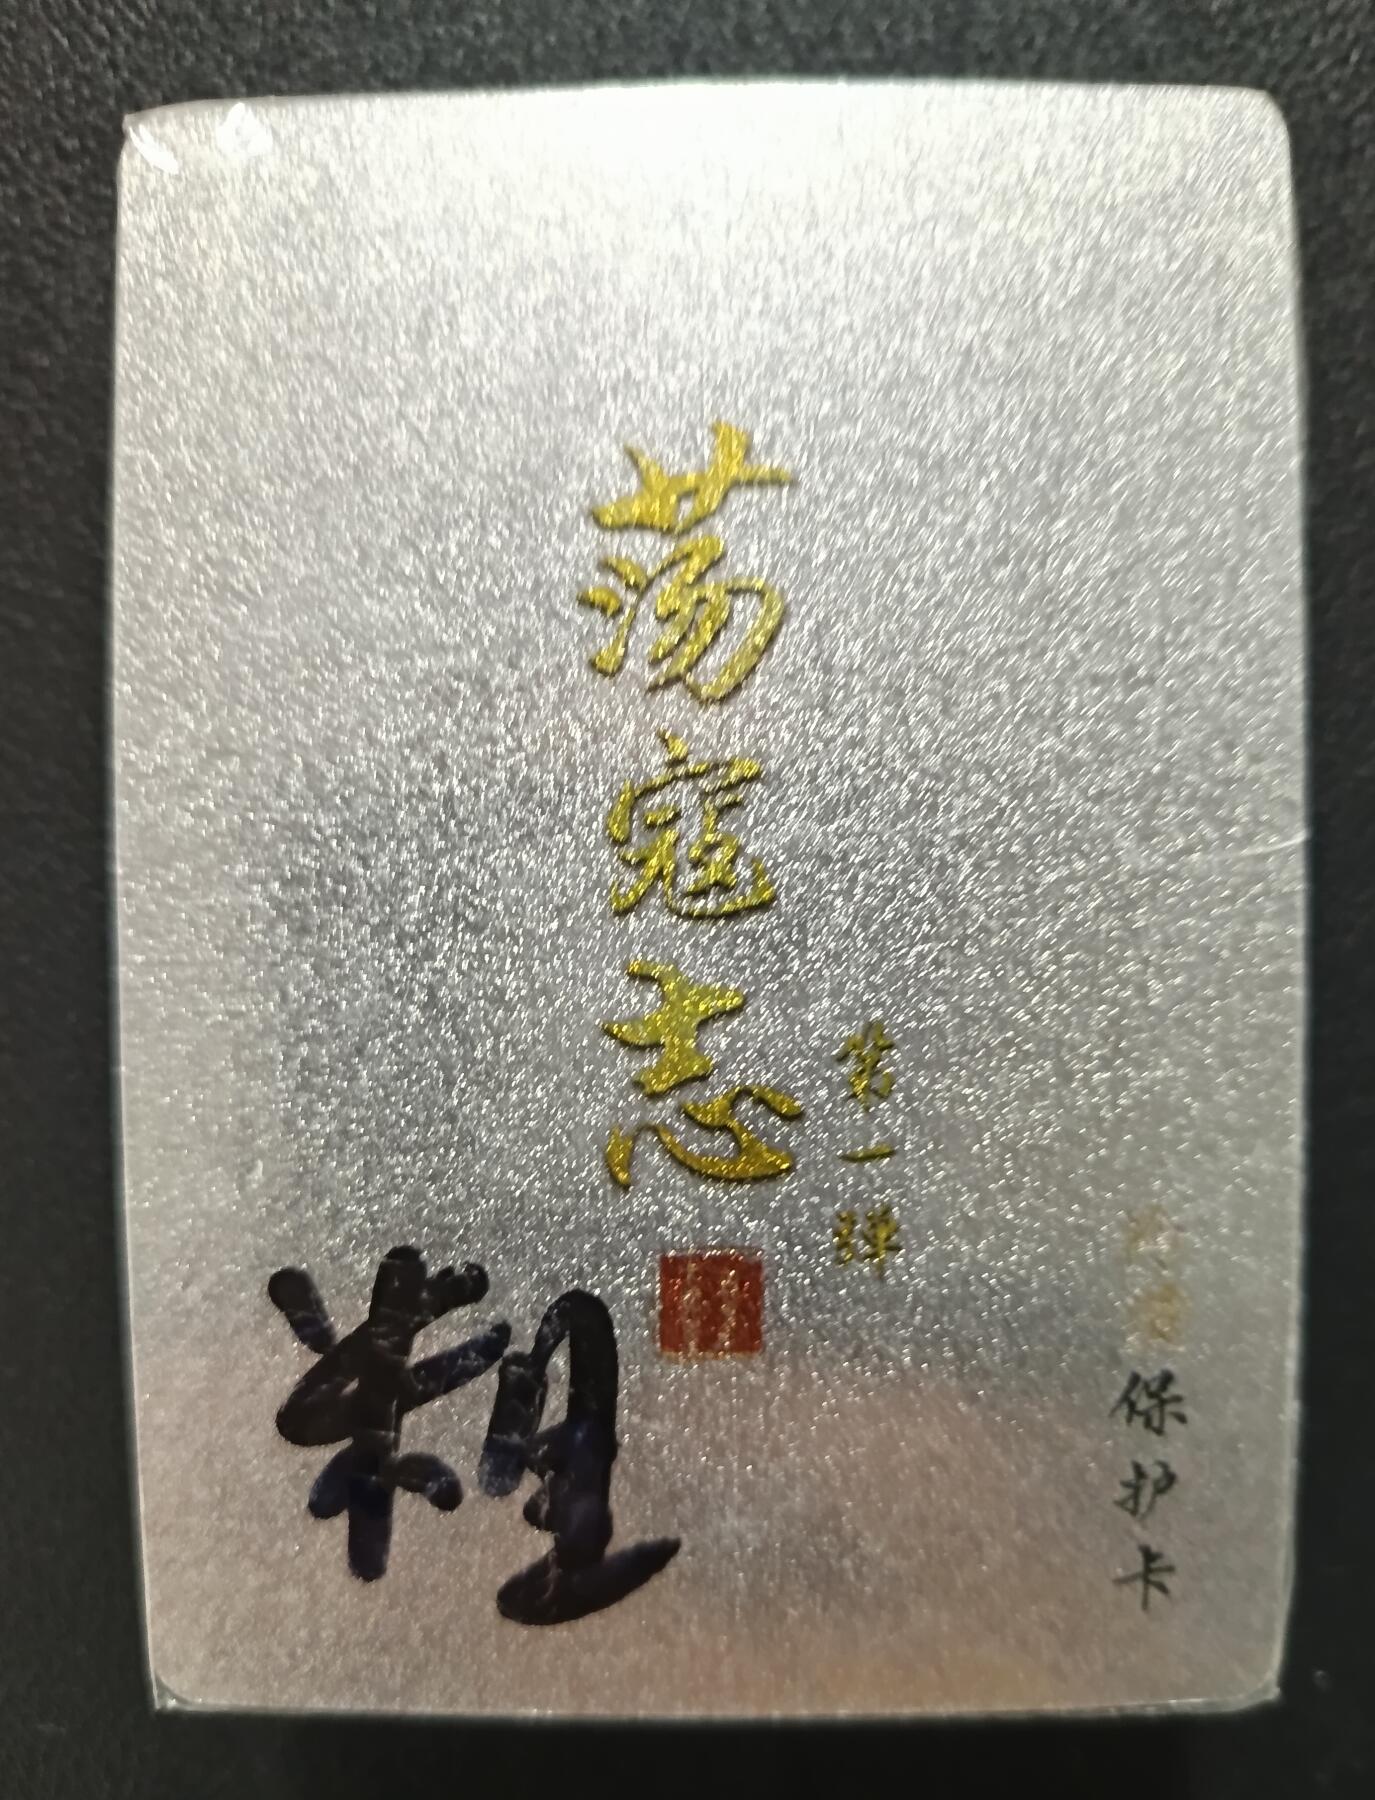 荡寇志
第一弹
保护卡
粗